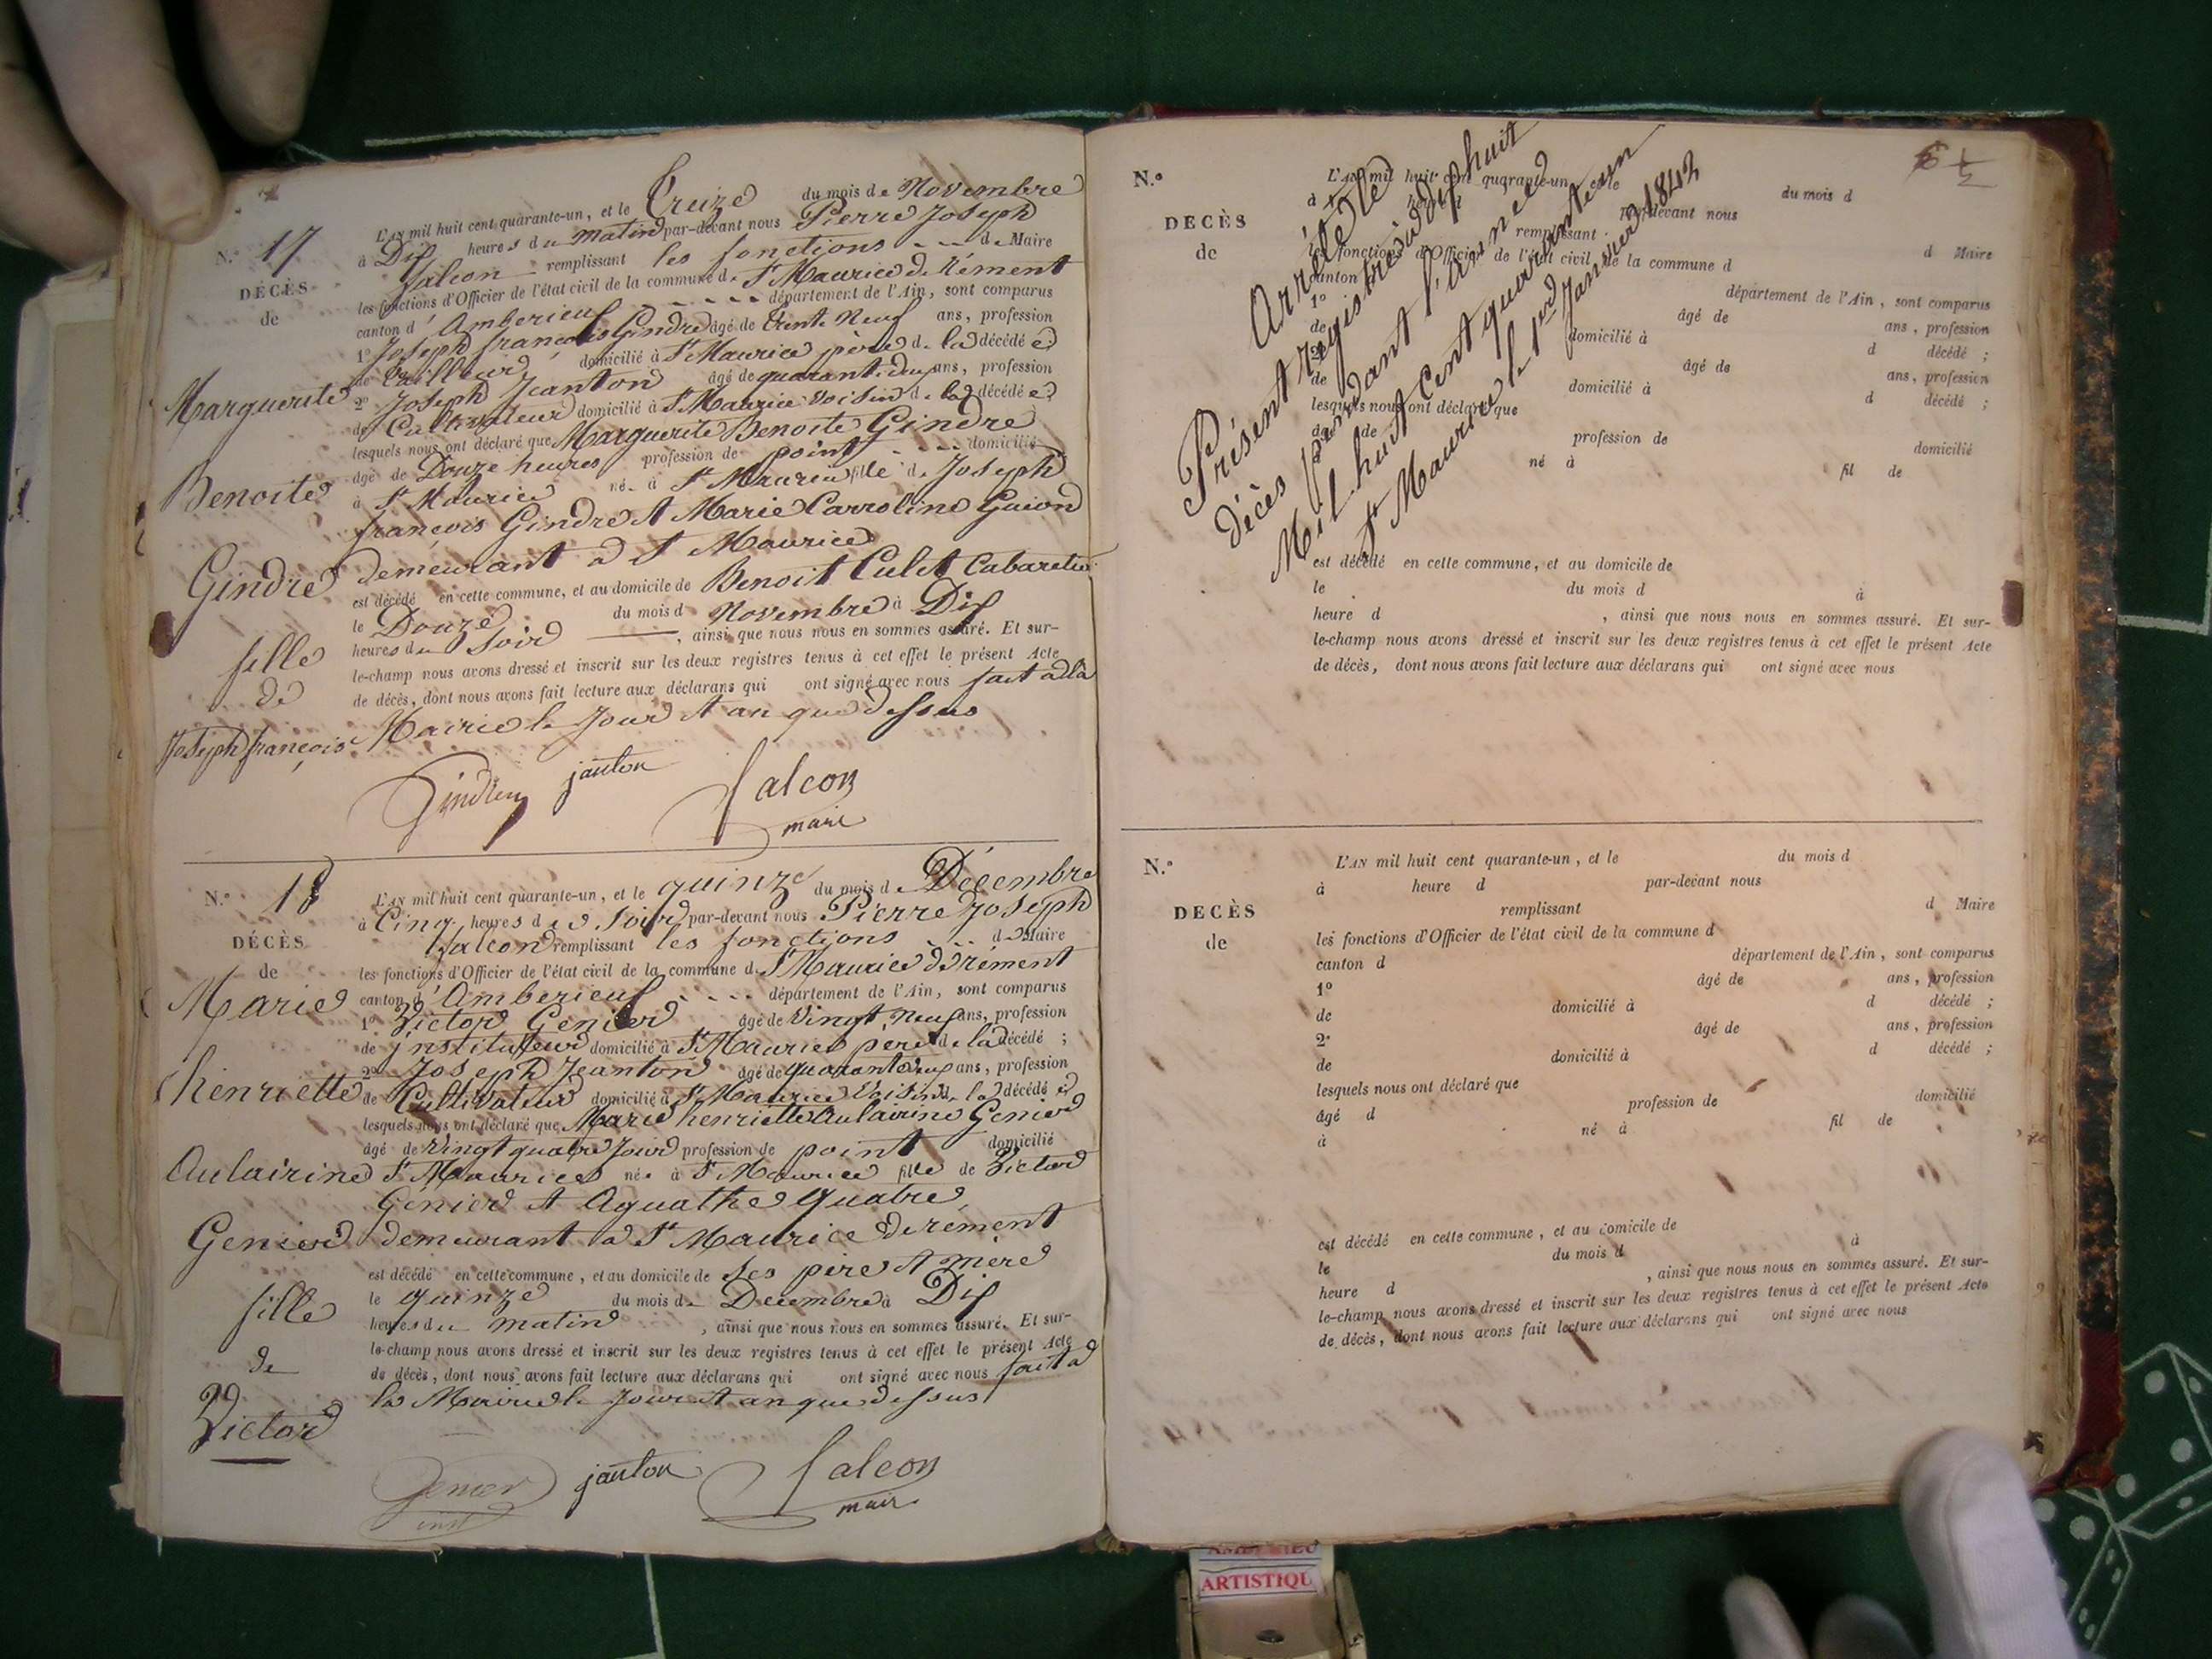 N.° 17
DÉCÈS
de
Marguerite
Benoite
Gindre
fille
de
Joseph françois
L'AN mil huit cent quarante-un, et le Treize du mois de Novembre
à Dix heures du matin par-devant nous Pierre Joseph
falcon remplissant les fonctions d. Maire
les fonctions d'Officier de l'état civil de la commune d. St Maurice de Rément
canton d'Amberieux département de l'Ain, sont comparus
1° Joseph françois Gindre âgé de trente Neuf ans, profession
de domicilié à St Maurice père d. la décédé e
2° Joseph Jeanton âgé de quarante deux ans, profession
de Cultivateur domicilié à St Maurice voisin d. la décédé e
lesquels nous ont déclaré que Marguerite Benoite Gindre
âgé de Douze heures profession de point domicilié
à St Maurice née à St Maurice fille d. Joseph
françois Gindre et Marie Carroline Guion
demeurant a St Maurice
est décédé en cette commune, et au domicile de Benoit Culet Cabaretier
le Douze du mois d. Novembre à Dix
heures du soir, ainsi que nous nous en sommes assuré. Et sur-
le-champ nous avons dressé et inscrit sur les deux registres tenus à cet effet le présent Acte
de décès, dont nous avons fait lecture aux déclarans qui ont signé avec nous fait a la
Mairie le Jour et an que dessus
jânton falcon
maire
N.° 18
DÉCÈS
de
Marie
henriette
Aulairine
Genier
fille
de
Victor
L'AN mil huit cent quarante-un, et le quinze du mois d. Décembre
à Cinq heures d u Soir par-devant nous Pierre Joseph
falcon remplissant les fonctions d. Maire
les fonctions d'Officier de l'état civil de la commune d. St Maurice de rément
canton d'Amberieux département de l'Ain, sont comparus
1° Victor Genier âgé de Vingt neuf ans, profession
de instituteur domicilié à St Maurice père d. la décédé ;
2° Joseph Jeanton âgé de quarante deux ans, profession
de Cultivateur domicilié à St Maurice Voisin d. la décédé e
lesquels nous ont déclaré que Marie henriette Aulairine Genier
âgé de Vingt quatre Jour profession de point domicilié
St Maurice née à St Maurice fille de Victor
Génier et Aguathe Quatre,
demeurant a St Maurice de rement
est décédé en cette commune, et au domicile de Ses père et mère
le quinze du mois d. Decembre à Dix
heures du matin, ainsi que nous nous en sommes assuré. Et sur-
le-champ nous avons dressé et inscrit sur les deux registres tenus à cet effet le présent Acte
de décès, dont nous avons fait lecture aux déclarans qui ont signé avec nous fait a
la Mairie le Jour et an que dessus
Genier jânton falcon
inst maire
Arrêté le
Présent registre a dix huit
décès pendant l'année
Mil huit Cent quarante un
St Maurice le 1er Janvier 1842
N.°
DECÈS
de
L'AN mil huit cent quarante-un, et le du mois d
par-devant nous
remplissant d Maire
les fonctions d'Officier de l'état civil de la commune d
canton département de l'Ain, sont comparus
1° âgé de ans, profession
de domicilié à d décédé ;
2° âgé de ans, profession
de domicilié à d décédé ;
lesquels nous ont déclaré que
âgé de profession de domicilié
né à fil de
est décédé en cette commune, et au domicile de
le du mois d à
heure d , ainsi que nous nous en sommes assuré. Et sur-
le-champ nous avons dressé et inscrit sur les deux registres tenus à cet effet le présent Acte
de décès, dont nous avons fait lecture aux déclarans qui ont signé avec nous
N.°
DECÈS
de
L'AN mil huit cent quarante-un, et le du mois d
à heure d par-devant nous
remplissant d Maire
les fonctions d'Officier de l'état civil de la commune d
canton d département de l'Ain, sont comparus
1° âgé de ans, profession
de domicilié à d décédé ;
2° âgé de ans, profession
de domicilié à d décédé ;
lesquels nous ont déclaré que
âgé d profession de domicilié
à né à fil de
est décédé en cette commune, et au domicile de
le du mois d à
heure d , ainsi que nous nous en sommes assuré. Et sur-
le-champ nous avons dressé et inscrit sur les deux registres tenus à cet effet le présent Acte
de décès, dont nous avons fait lecture aux déclarans qui ont signé avec nous
ARTISTIQU